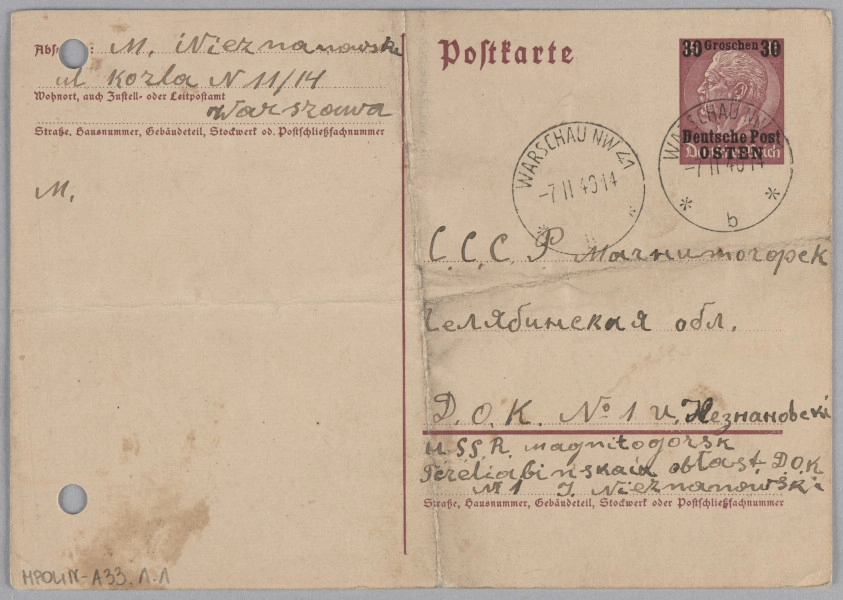 M. Nieznanowski
ul Kozla N 11/14
Wohnort, auch Zustell- oder Leitpostamt
Warszawa
Straße, Hausnummer, Gebäudeteil, Stockwerk od. Postschließfachnummer
M.
Postkarte
30 Groschen 30
Deutsche Post
OSTEN
WARSCHAU NW 41
-7 II 40 14
WARSCHAU NW
-7 II 40 14
b
С. С. С. Р Магнитогорск
Челябинская обл.
Д. О. К. № 1 И. Незнановски
U SS R. Magnitogorsk
obłast. D.O.K
№ 1 J. Nieznanowski
Straße, Hausnummer, Gebäudeteil, Stockwerk oder Postschließfachnummer
MPOLIN-A33.1.1